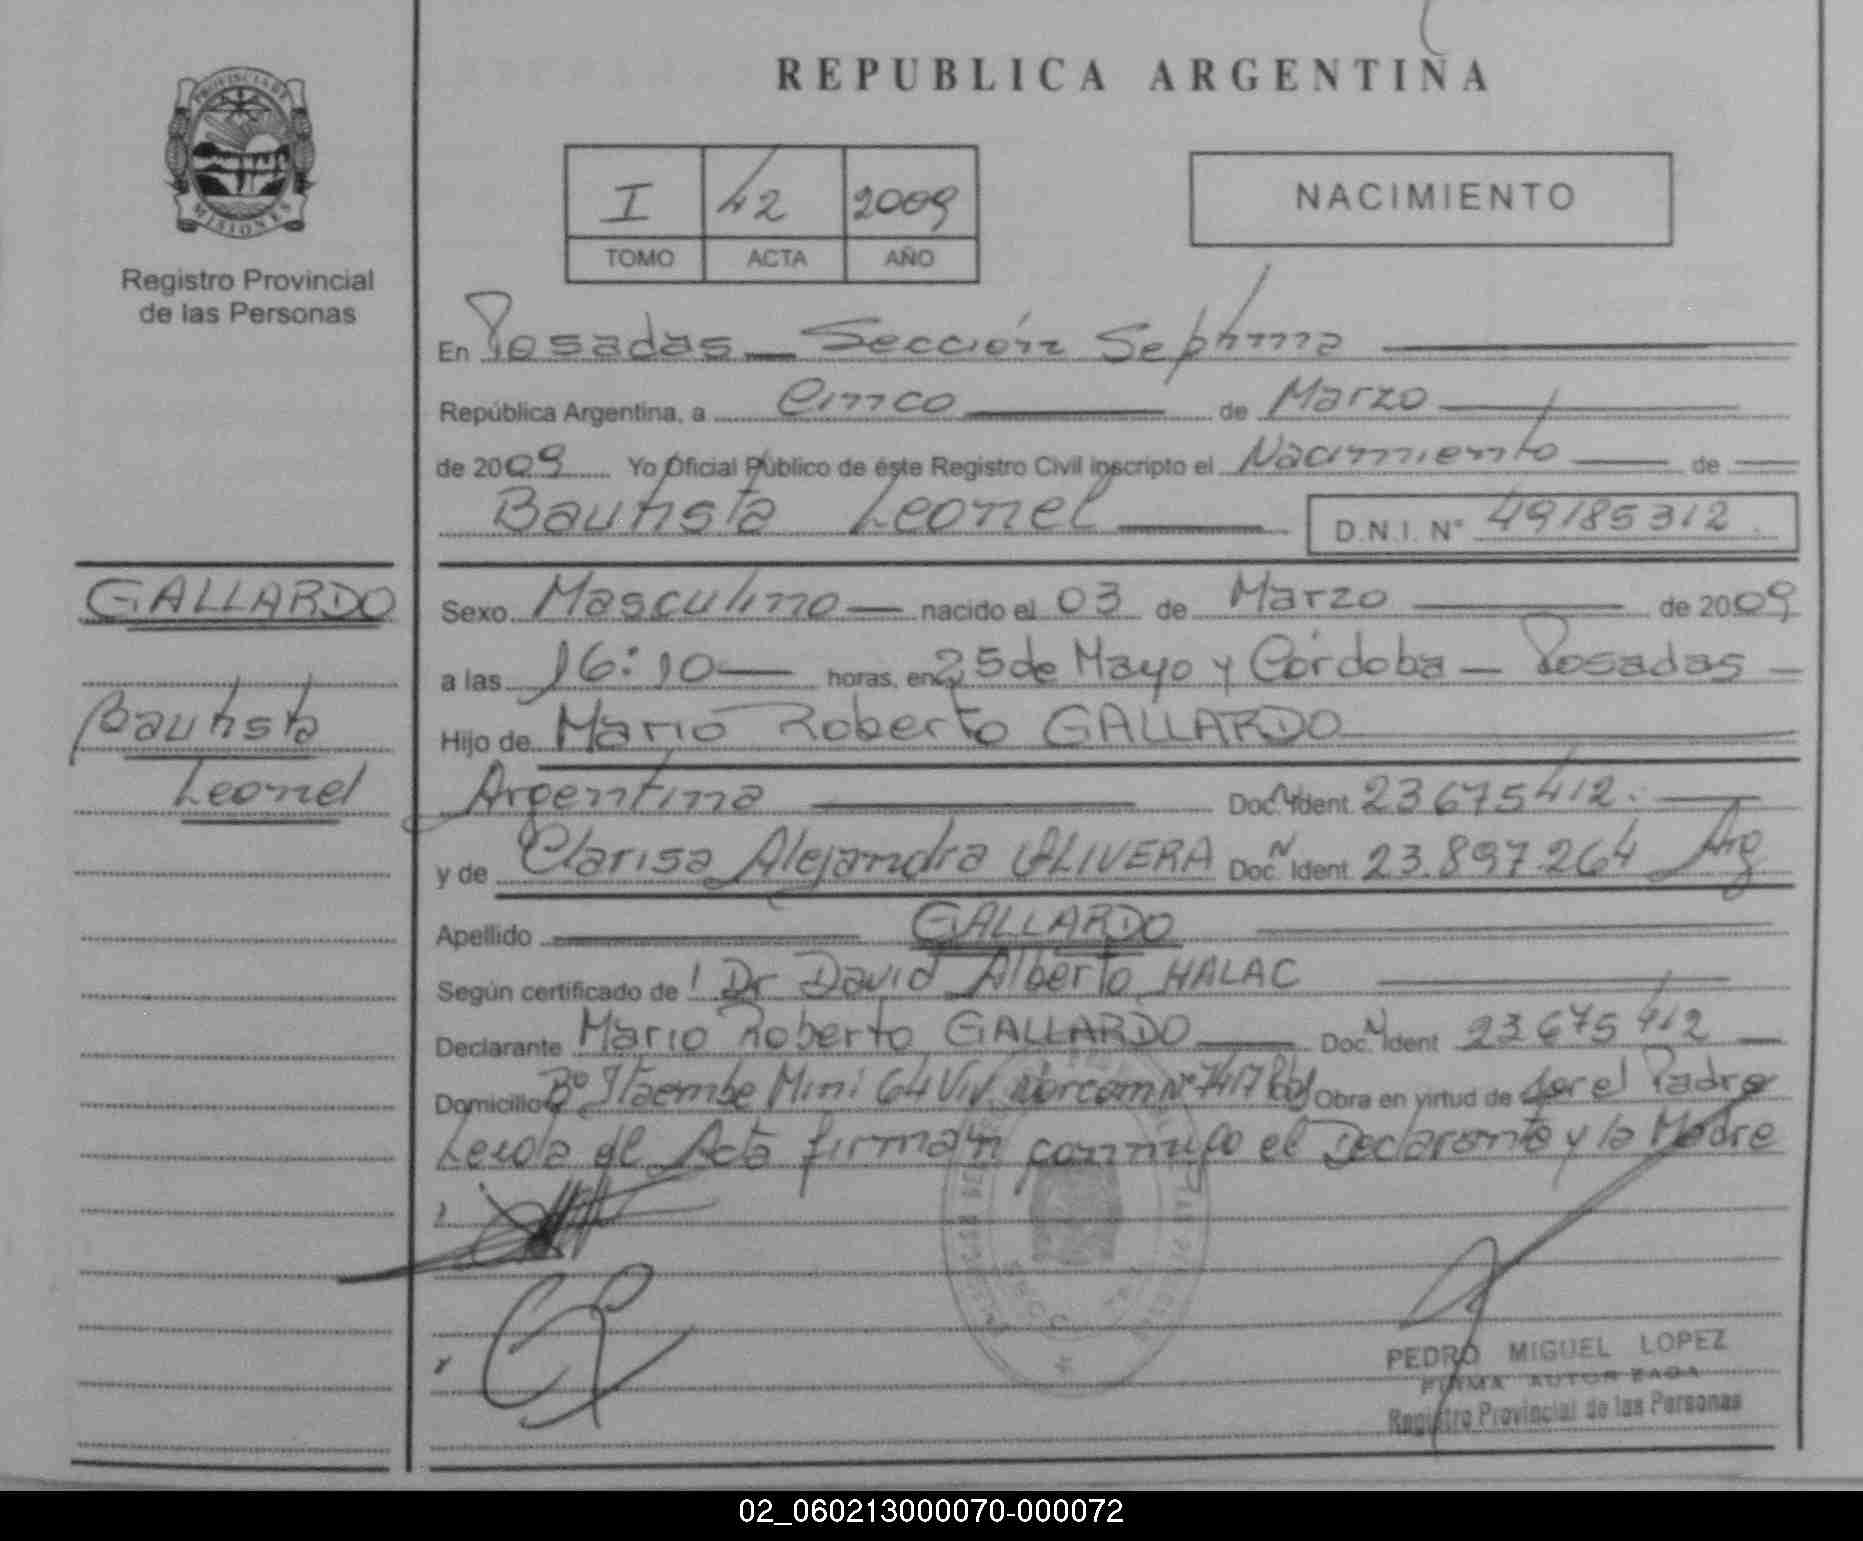 REPUBLICA ARGENTINA
PROVINCIA DE
MISIONES
Registro Provincial
de las Personas
I 42 2009
TOMO ACTA AÑO
NACIMIENTO
En Posadas - Sección Septima
República Argentina, a Cinco de Marzo
de 2009 Yo Oficial Público de éste Registro Civil inscripto el Nacimiento de
Bautista Leonel D.N.I. N° 49185312
GALLARDO
Bautista
Leonel
Sexo Masculino nacido el 03 de Marzo de 2009
a las 16:10 horas, en 25 de Mayo y Córdoba - Posadas
Hijo de Mario Roberto GALLARDO
Argentina Doc. N Ident. 23675412.
y de Clarisa Alejandra OLIVERA Doc. N Ident. 23.897.264 Arg
Apellido GALLARDO
Según certificado de Dr David Alberto HALAC
Declarante Mario Roberto GALLARDO Doc. N Ident 23675412
Domicilio B° Itaembe Mini 64 Viv. N° 7417 Obra en virtud de ser el Padre
Leida el Acta firman conmigo el Declarante y la Madre
PEDRO MIGUEL LOPEZ
FIRMA AUTORIZADA
Registro Provincial de las Personas
02_060213000070-000072